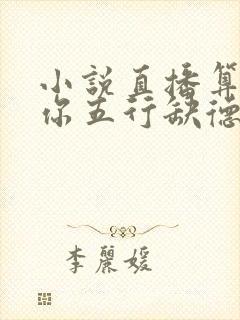 小說直播算
你五行缺德
李麗媛